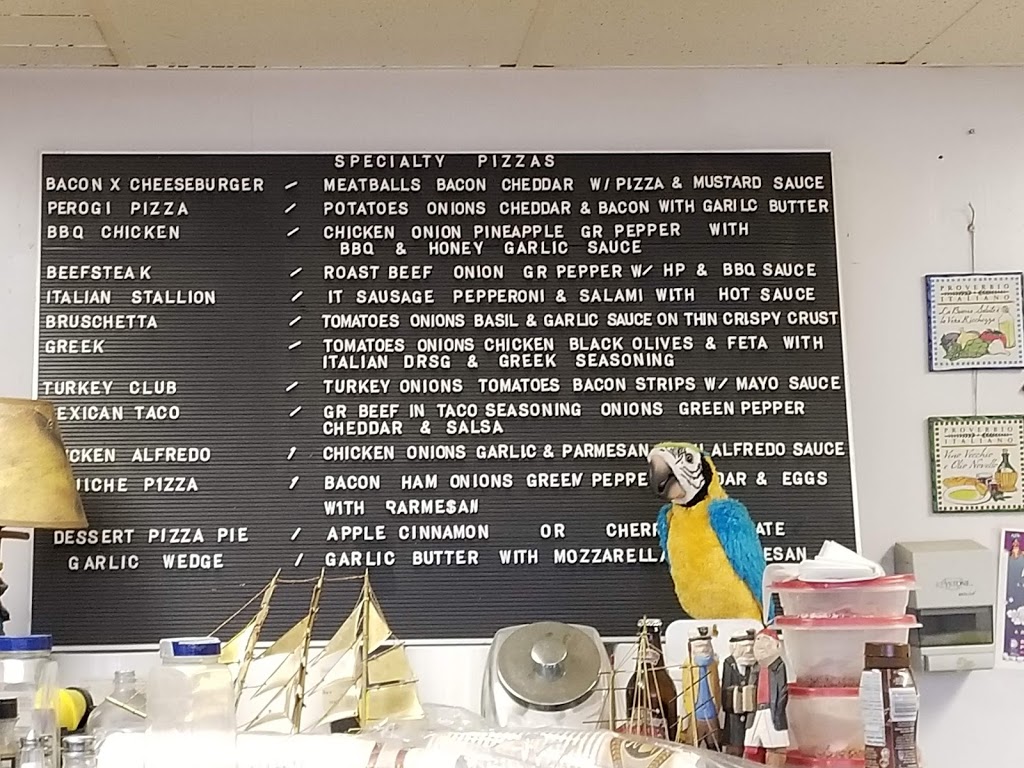 SPECIALTY PIZZAS
BACON X CHEESEBURGER / MEATBALLS BACON CHEDDAR W/PIZZA & MUSTARD SAUCE
PEROGI PIZZA / POTATOES ONIONS CHEDDAR & BACON WITH GARILC BUTTER
BBQ CHICKEN / CHICKEN ONION PINEAPPLE GR PEPPER WITH
BBQ & HONEY GARLIC SAUCE
BEEFSTEAK / ROAST BEEF ONION GR PEPPER W/ HP & BBQ SAUCE
ITALIAN STALLION / IT SAUSAGE PEPPERONI & SALAMI WITH HOT SAUCE
BRUSCHETTA / TOMATOES ONIONS BASIL & GARLIC SAUCE ON THIN CRISPY CRUST
GREEK / TOMATOES ONIONS CHICKEN BLACK OLIVES & FETA WITH
ITALIAN DRSG & GREEK SEASONING
TURKEY CLUB / TURKEY ONIONS TOMATOES BACON STRIPS W/ MAYO SAUCE
EXICAN TACO / GR BEEF IN TACO SEASONING ONIONS GREEN PEPPER
CHEDDAR & SALSA
CKEN ALFREDO / CHICKEN ONIONS GARLIC & PARMESAN ALFREDO SAUCE
UICHE PIZZA / BACON HAM ONIONS GREEN PEPPE DAR & EGGS
WITH PARMESAN
DESSERT PIZZA PIE / APPLE CINNAMON OR CHERR ATE
GARLIC WEDGE / GARLIC BUTTER WITH MOZZARELLA ESAN
PROVERBIO
ITALIANO
La Buona Salute è
la Vera Ricchezza
PROVERBIO
ITALIANO
Vino Vecchio
e Olio Novello